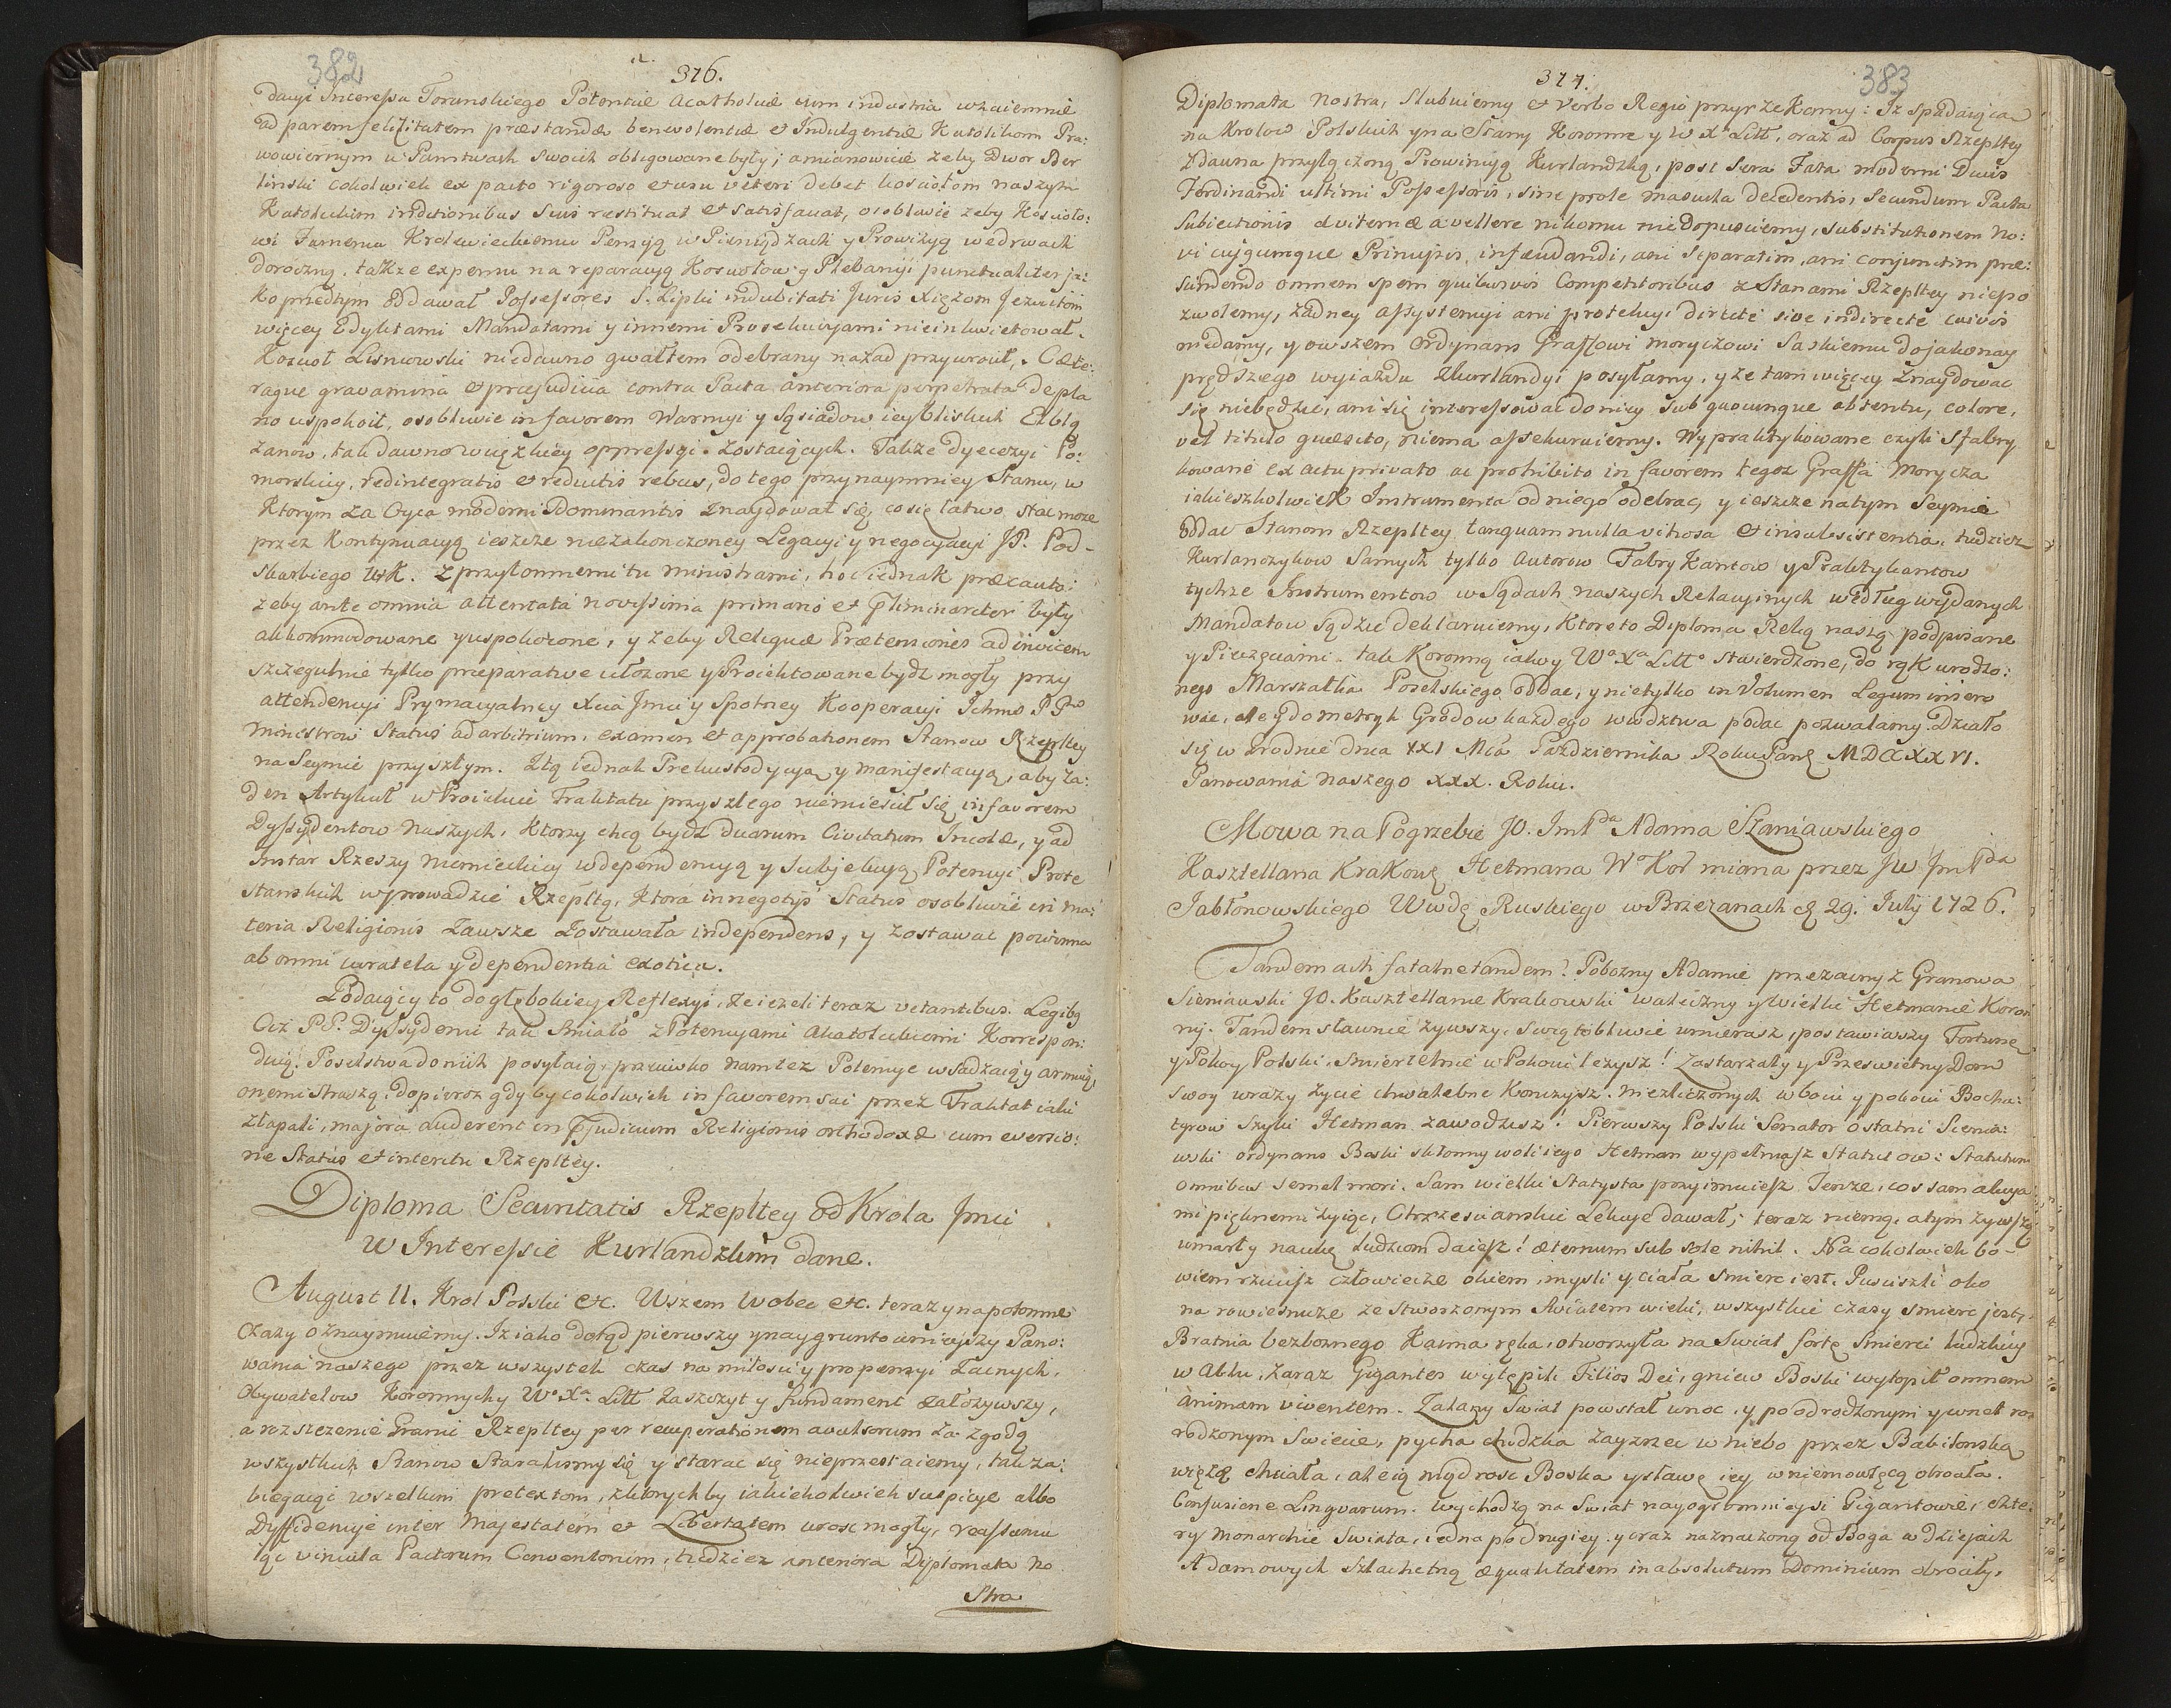 382
376.
dacyi Interessu Torunskiego Potentiæ Acatholicæ cum industria wzaiemnie
ad parem felicitatem præstandæ benevolentiæ et Indulgentiæ Katolikom Pra:
wowiernym w Panstwach swoich obligowane były; a mianowicie zeby Dwor Ber
linski cokolwiek ex pacto rigoroso et usu veteri debet kosciołom naszym
Katolickim in ditionibus suis restituat et satisfaciat, osobliwie zeby Koscioło:
wi Farnemu Krolewieckiemu Pensyą w Pieniędzach y Prowizyą w drwach
doroczną, takze expensu na reparacyą Kosciołow y Plebanyi punctualiter ja:
ko przedtym oddawał Possessores S. Lipki indubitati Juris Xięzom Jezuitom
więcey Edyktami Mandatami y innemi Prosekucyami nieinkwietował.
Kosciół Lisnowski niedawno gwałtem odebrany nazad przywrocił, Cæte:
raque gravamina et præjudicia contra Pacta anteriora perpetrata de pla
no uspokoił, osobliwie in favorem Warmyi y Sąsiadow iey bliskich Elblą
zanow, tak dawno w cięzkiey oppressyi zostaiących. Takze dyecezyi Po:
morskiey, redintegratis et reductis rebus, do tego przynaymniey Stanu, w
ktorym za Oyca moderni Dominantis znaydował się, co się łatwo stac moze
przez kontynuacyą ieszcze niezakonczoney Legacyi y negocyacyi JP. Pod-
skarbiego WK. z przytomnemi tu ministrami, hoc iednak præcauto:
zeby ante omnia attentata novissima primario et plimin​ariter były
akkommodowane y uspokoione, y zeby Reliquæ Prætensiones ad invicem
szczegulnie tylko præparative ułozone y Proiektowane bydz mogły przy
attendencyi Prymacyalney Xcia Jmci y spolney Kooperacyi Ichmo PPo
ministrow Status ad arbitrium, examen et approbationem Stanow Rzeplltey
na Seymie przyszłym. Ztą iednak Prekustodycyą y manifestacyą, aby za:
den Artykuł w Proiekcie Traktatu przyszłego niemiescił się in favorem
Dyssydentow naszych, ktorzy chcą bydz duarum Civitatum Incolæ, y ad
instar Rzeszy niemieckiey w dependencyą y subjekcyą Potencyi Prote
stanskich wprowadzic Rzepltą, ktora in negotys Status osobliwie in ma:
teria Religionis zawsze zostawała independens, y zostawac powinna
ab omni curatela y dependentia exotica.
Podaiący to do głębokiey Reflexyi, ze iezeli teraz vetantibus Legibg
Ciz PP. Dyssydenci tak smiało z Potencyami Akatolickiemi Korrespon:
duią, Poselstwa do nich posyłaią, przeciwko nam tez Potencye wsadzaią y armuią,
onemi straszą; dopieroz gdyby cokolwiek in favorem sui przez Traktat iaki
złapali, majora auderent in pjudicium Religionis orthodoxæ cum eversio:
ne Status et interitu Rzepltey.
Diploma Securitatis Rzepltey od Krola Jmci
w Interessie Kurlandzkim dane.
August II. Krol Polski etc. Wszem wobec etc. teraz y napotomne
czasy oznaymuiemy. Iz iako dotąd pierwszy y naygruntownieyszy Pano:
wania naszego przez wszystek czas na miłosci y propensyi Zacnych
Obywatelow Koronnych y Wo Xa Litt zaszczyt y fundament załozywszy,
a rozszczenie Granic Rzepltey per recuperationem avulsorum za zgodą
wszystkich Stanow staralismy się y starac się nieprzestaiemy, tak za:
biegaiąc wszelkim pretextom, z ktorych by iakiekolwiek suspicye albo
Dyffidencye inter Majestatem et Libertatem urosc mogły, reassumu
iąc vincula Pactorum Conventorum, tudziez anteriora Diplomata no
Stra
383
377.
Diplomata nostra, slubuiemy et verbo Regio przyrzekamy: Iz spadaiąca
na Krolow Polskich y na Stany Koronne y W Xa Litt, oraz ad Corpus Rzepltey
zdawna przyłączoną Prowincyą Kurlandzką, post sera Fata moderni Ducis
Ferdinandi ultimi Possessoris, sine prole mascula decedentis, secundum Pacta
Subiectionis aviternæ avellere nikomu niedopusciemy, substitutionem no:
vi cujuscumque Principis, infeudandi, ani separatim, ani conjunctim præ:
scindendo omnem spem quibusvis Competitoribus z Stanami Rzepltey niepo
zwolemy, zadney assystencyi ani protekcyi directe sive indirecte cuivis
niedamy, y owszem Ordynans Graffowi morycżowi Saskiemu do jaknay
prędszego wyiazdu z Kurlandyi posyłamy, y ze tam więcey znaydowac
się niebędzie, ani się interessowac do niey sub quocunque obtentu, colore,
vel titulo quæsito, niema assekuruiemy. Wypraktykowane czyli sfabry
kowane ex actu privato ac prohibito in favorem tegoz Graffa Morycza
iakieszkolwiek Instrumenta od niego odebrac, y ieszcze na tym Seymie
oddac Stanom Rzepltey tanquam nulla vitiosa et insubsistentia, tudziesz
Kurlanczykow samych tylko Autorow Fabrykantow y Praktykantow
tychze Instrumentow w Sądach naszych Relacyinych według wydanych
Mandatow sądzic deklaruiemy, ktore to Diploma Ręką naszą podpisane
y Pieczęciami tak Koronną iako y Wo Xa Litto stwierdzone, do rąk urodzo:
nego Marszałka Poselskiego oddac, y nietylko in Volumen Legum insero
wac, ale y do metryk Grodow kazdego wwdztwa podac pozwalamy. Działo
się w Grodnie dnia XXI Mca Pazdziernika Roku Pansk MDCCXXVI.
Panowania naszego XXX. Roku.
Mowa na Pogrzebie JO. ImPda Adama Siẽniawskiego
Kasztellana Krakowg Hetmana Wo Kor miana przez JW ImPda
Jabłonowskiego Wwdę Ruskiego w Brzezanach d 29. July 1726.
Tandem ach fatalne tandem! Pobozny Adamie przezacny z Granowa
Sieniawski JO. Kasztellanie Krakowski waleczny y wielki Hetmanie Koron
ny. Tandem sławnie zywszy, swiętobliwie umierasz, postawiwszy Fortunę
y Pokoy Polski, smiertelnie w Pokoiu lezysz! Zastarzały y Przeswietny Dom
swoy wrazy zycie chwalebne konczysz. niezliczonych w boiu y pokoiu Bocha:
tyrow szyki Hetman zawodzisz! Pierwszy Polski Senator ostatni Sienia:
wski ordynans Boski skłonny woli iego Hetman wypełniasz Statut ow: Statutum
omnibus semel mori. Sam wielki Statysta przyimuiesz Tenze, cos sam akcya
mi pięknemi zyiąc, Chrzescianskie Lekcye dawał; teraz niemą, a tym zywszą
umarły naukę ludziom daiesz! æternum sub sole nihil. Na cokolwiek bo-
wiem rzucisz człowiecze okiem, mysli y ciała smierc iest. Pusciszli oko
na rowiesnicze ze stworzonym swiatem wieki, wszystkie czasy smierc jest,
Bratnia bezboznego Kaima ręka, otworzyła na swiat fortę smierci ludzkiey
w Ablu, zaraz Gigantes wytępili Filios Dei, gniew Boski wytopił omnem
animam viventem. Zalany swiat powstał unoc, y po odrodzonym y wnet roz
rodzonym swiecie, pycha ludzka zayzrzec w niebo przez Babilonską
wiezę chciała, ale ią mądrosc Boska y sławę iey w niemowlęcą obroała.
Confusione Linguarum. Wychodzą na swiat nayogromnieysi Gigantowie, czte:
ry monarchie swiata, iedna po drugiey y oraz naznaczoną od Boga w dziejach
Adamowych szlachetną æqualitatem in absolutum Dominium obrociły,